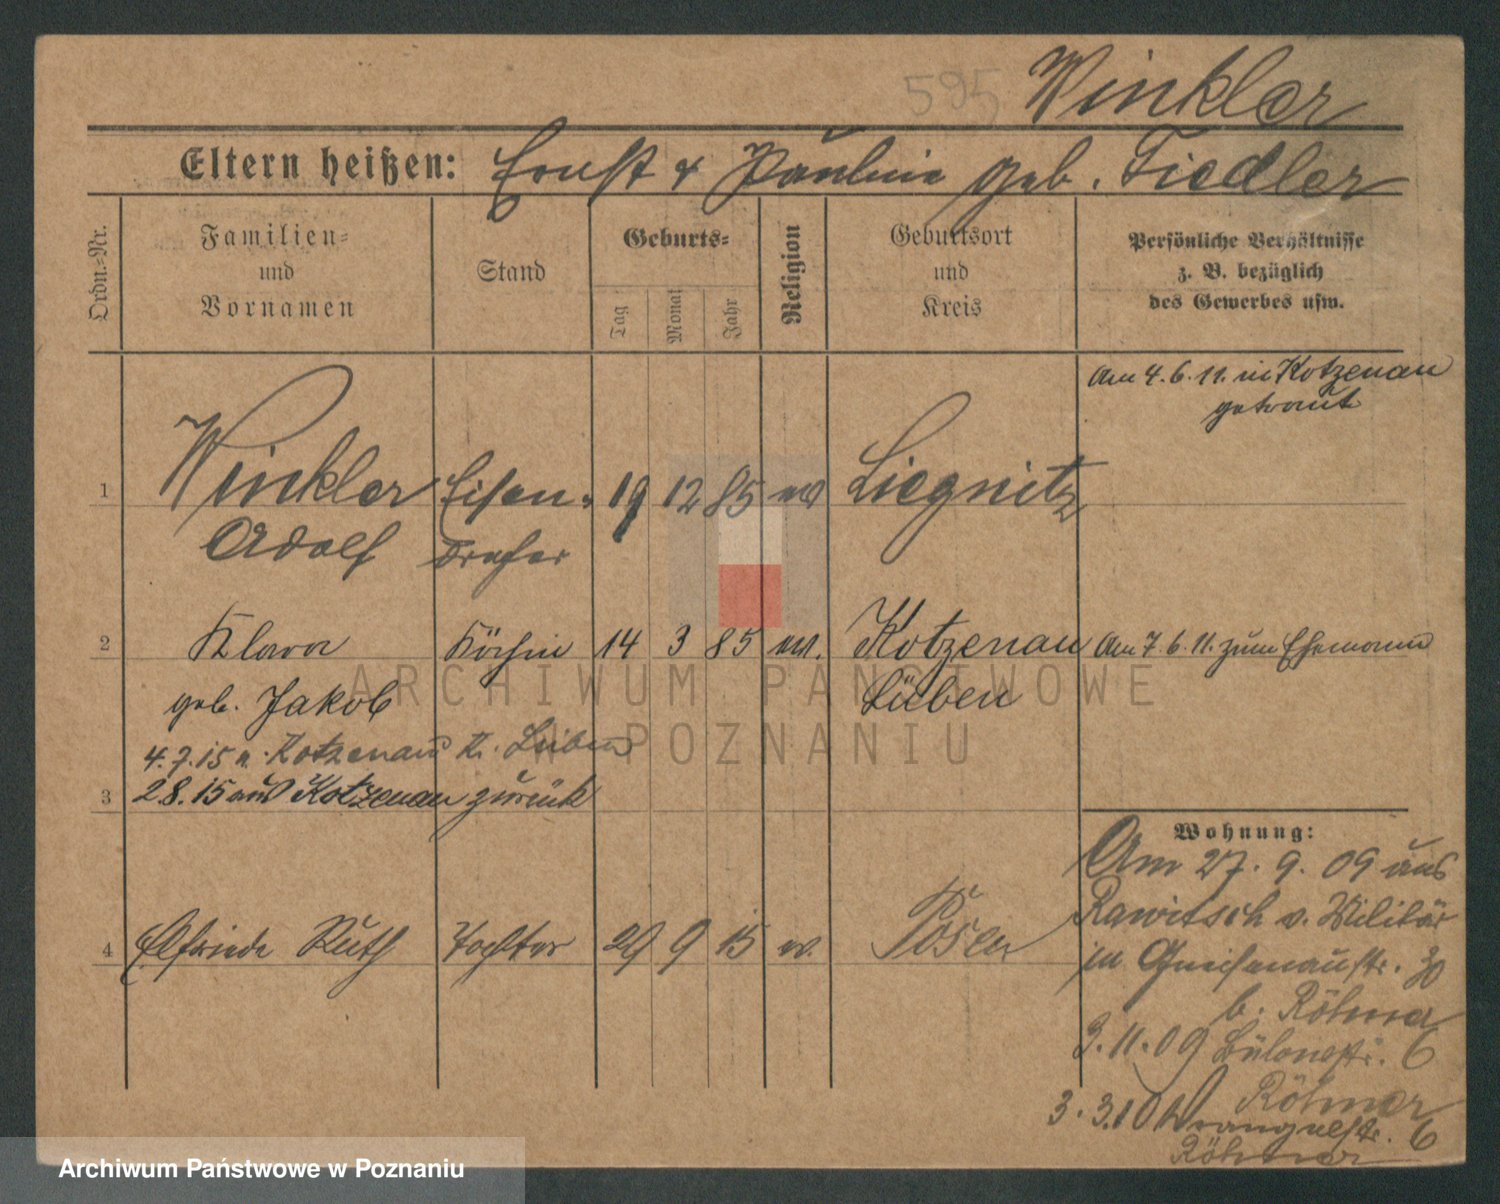 595 Winkler
Eltern heißen: Ernst & Pauline geb. Fiedler
Ordn.-Nr.
Familien-
und
Vornamen
Stand
Geburts-
Tag
Monat
Jahr
Religion
Geburtsort
und
Kreis
Persönliche Verhältnisse
z. B. bezüglich
des Gewerbes usw.
Am 4.6.11. in Kotzenau
getraut
1 Winkler Eisen- 19 12 85 ev Liegnitz
Adolf Dreher
2 Klara Köchin 14 3 85 ev. Kotzenau Am 7.6.11. zum Ehemann
geb. Jakob Lüben
4.7.15 n. Kotzenau Kr. Lüben
3 28.15 aus Kotzenau zurück
Wohnung:
Am 27.9.09 aus
Rawitsch v. Militär
in Gneisenaustr. 30
b. Röhmer
4 Elfriede Ruth Tochter 29 9 15 ev. Posen
3.11.09 Bülowstr. 6
Röhmer
3.3.10 Wrangelstr. 6
Röhmer
ARCHIWUM PAŃSTWOWE
W POZNANIU
Archiwum Państwowe w Poznaniu